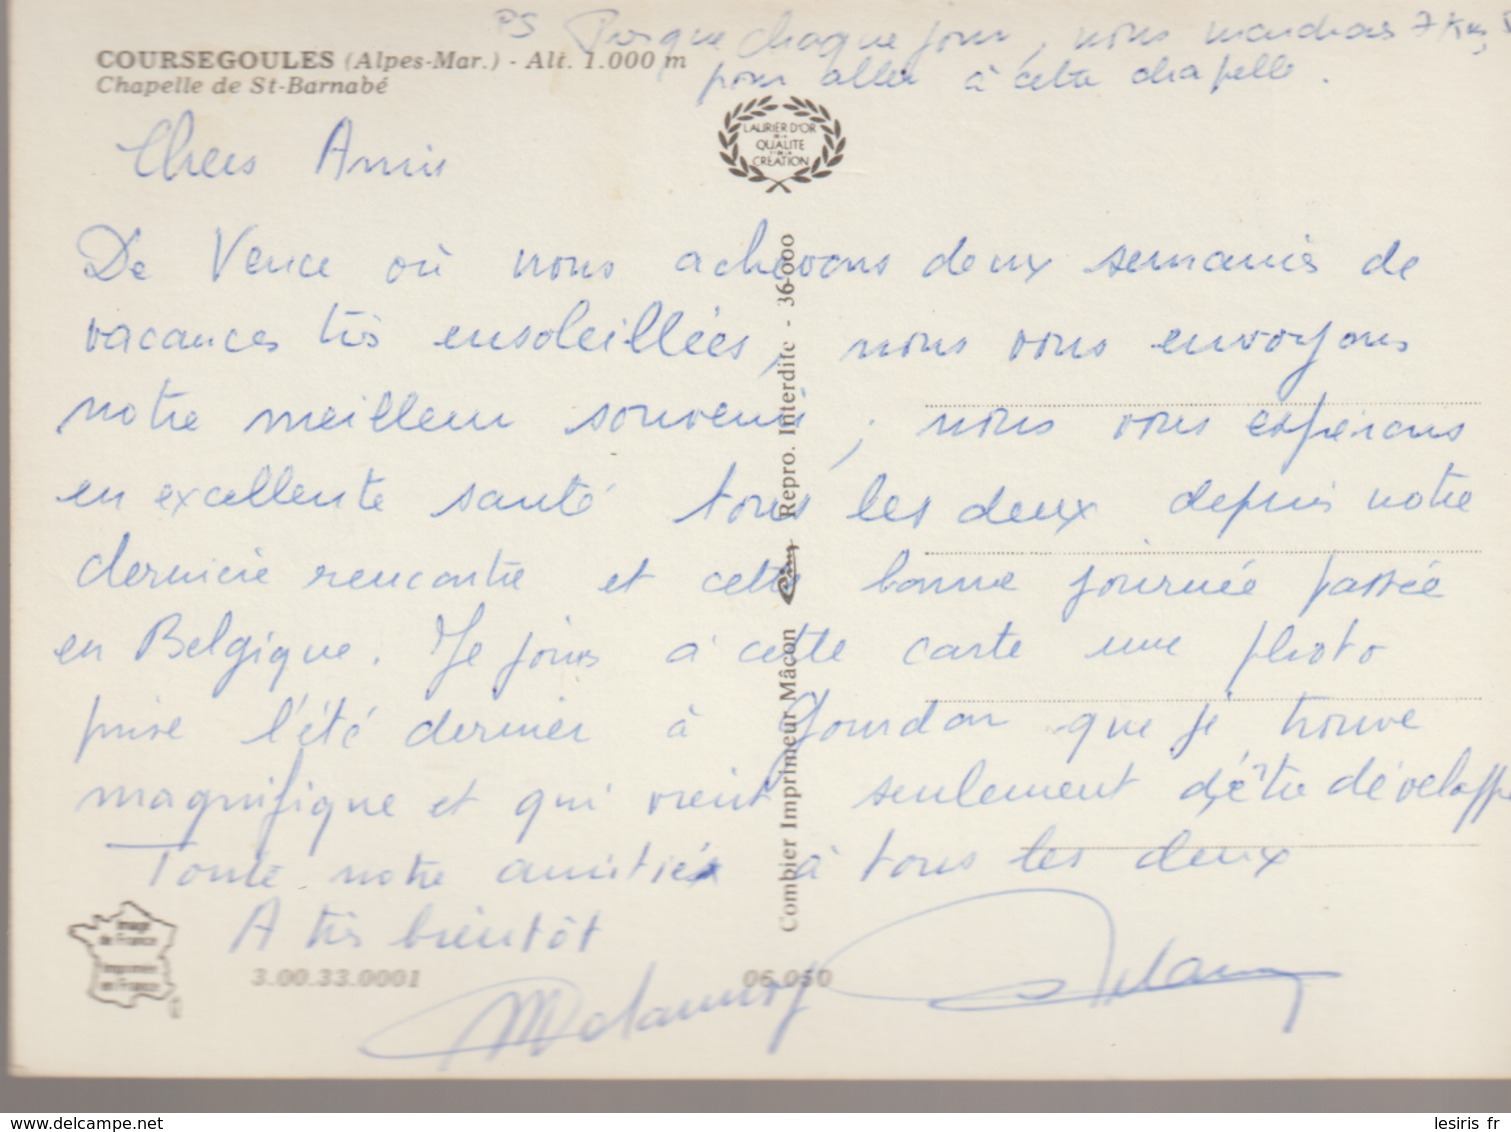 PS Presque chaque jour, nous marchons 7 Km,5
pour aller à cette chapelle.
COURSEGOULES (Alpes-Mar.) - Alt. 1.000 m
Chapelle de St-Barnabé
LAURIER D'OR
DE LA
QUALITE
ET DE LA
CRÉATION
Chers Amis
De Vence où nous achevons deux semaines de
vacances très ensoleillées, nous vous envoyons
notre meilleur souvenir ; nous vous espérons
en excellente santé tous les deux depuis notre
dernière rencontre et cette bonne journée passée
en Belgique. Je joins à cette carte une photo
prise l'été dernier à Gourdon que je trouve
magnifique et qui vient seulement d'être développé
Toute notre amitié à tous les deux
A très bientôt
Combier Imprimeur Mâcon Cim Repro. Interdite - 36-000
Image
de France
Imprimée
en France
3.00.33.0001
06.050
MDelannoy
lesiris_fr